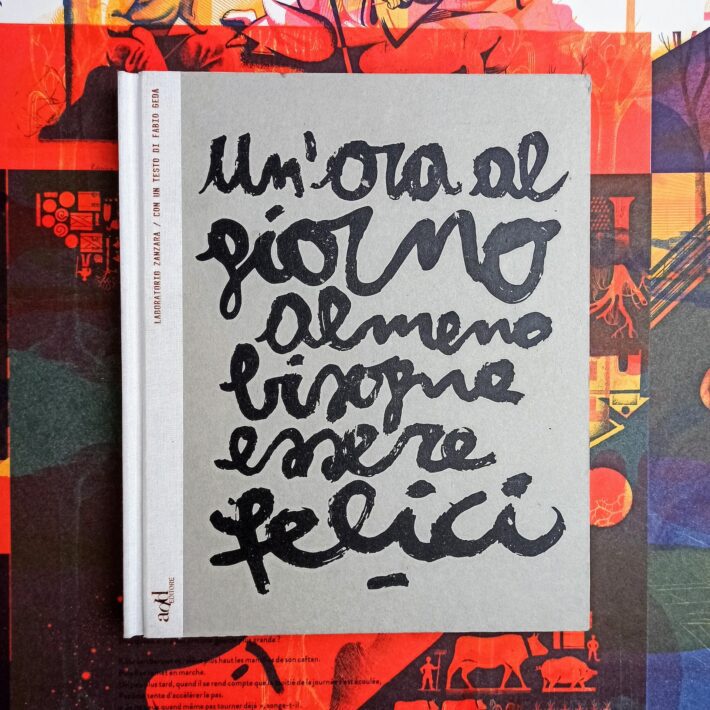 LABORATORIO ZANZARA / CON UN TESTO DI FABIO GEDA
Un'ora al
giorno
almeno
bisogna
essere
felici
add
EDITORE
plus haut les man
de son caftan.
et en marche.
plus tard, quand il se rend compte que la moitié de la journée s'est écoulée,
tente d'accélérer le pas.
quand même pas tourner déjà », songe-t-il.